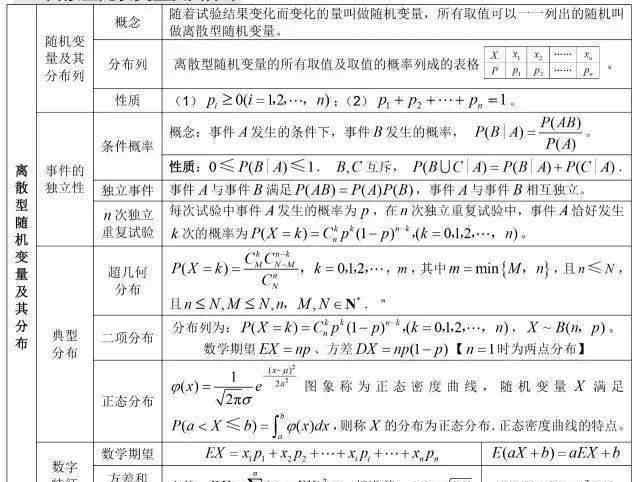 随机变量及其分布列
概念
随着试验结果变化而变化的量叫做随机变量，所有取值可以一一列出的随机叫
做离散型随机变量。
分布列
离散型随机变量的所有取值及取值的概率列成的表格
X x₁ x₂ …… xₙ
P p₁ p₂ …… pₙ
。
性质
（1） pᵢ ≥0(i =1,2,⋯, n)；（2） p₁ + p₂ + ⋯ + pₙ =1。
离散型随机变量及其分布
事件的
独立性
条件概率
概念：事件 A 发生的条件下，事件 B 发生的概率， P(B | A) = P(AB)/P(A) 。
性质：0≤P(B | A)≤1． B,C 互斥， P(B∪C | A) = P(B | A)+P(C | A)．
独立事件
事件 A 与事件 B 满足 P(AB) = P(A)P(B)，事件 A 与事件 B 相互独立。
n 次独立
重复试验
每次试验中事件 A 发生的概率为 p，在 n 次独立重复试验中，事件 A 恰好发生
k 次的概率为 P(X = k) = Cₙᵏ pᵏ(1− p)ⁿ⁻ᵏ,(k = 0,1,2,⋯, n)。
典型
分布
超几何
分布
P(X = k) = C_M^k C_{N−M}^{n−k}/C_N^n ，k = 0,1,2,⋯, m，其中 m = min{M，n}，且 n ≤ N，
且 n ≤ N, M ≤ N, n，M, N ∈ N*． "
二项分布
分布列为： P(X = k) = Cₙᵏ pᵏ(1− p)ⁿ⁻ᵏ,(k = 0,1,2,⋯, n)． X ~ B(n，p)。
数学期望 EX = np 、方差 DX = np(1− p)【n =1时为两点分布】
正态分布
φ(x) = 1/(√(2π)σ) e^{−(x−μ)²/(2σ²)} 图象称为正态密度曲线，随机变量 X 满足
P(a < X ≤ b) = ∫ₐᵇ φ(x)dx，则称 X 的分布为正态分布．正态密度曲线的特点。
数字
数学期望
EX = x₁p₁ + x₂p₂ + ⋯ + xᵢpᵢ + ⋯ + xₙpₙ
E(aX + b) = aEX + b
方差和